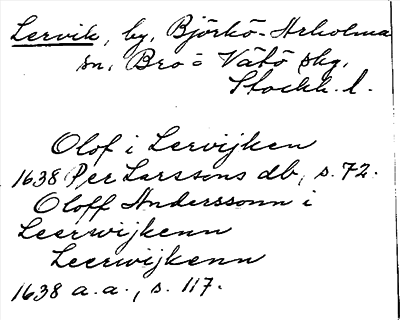 Lervik, by, Björkö-Arholma
sn, Bro o Vätö skg,
Stockh. l.
Olof i Lervijken
1638 Per Larssons db, s. 72.
Oloff Anderssonn i
Leerwijkenn
Leerwijkenn
1638 a.a., s. 117.